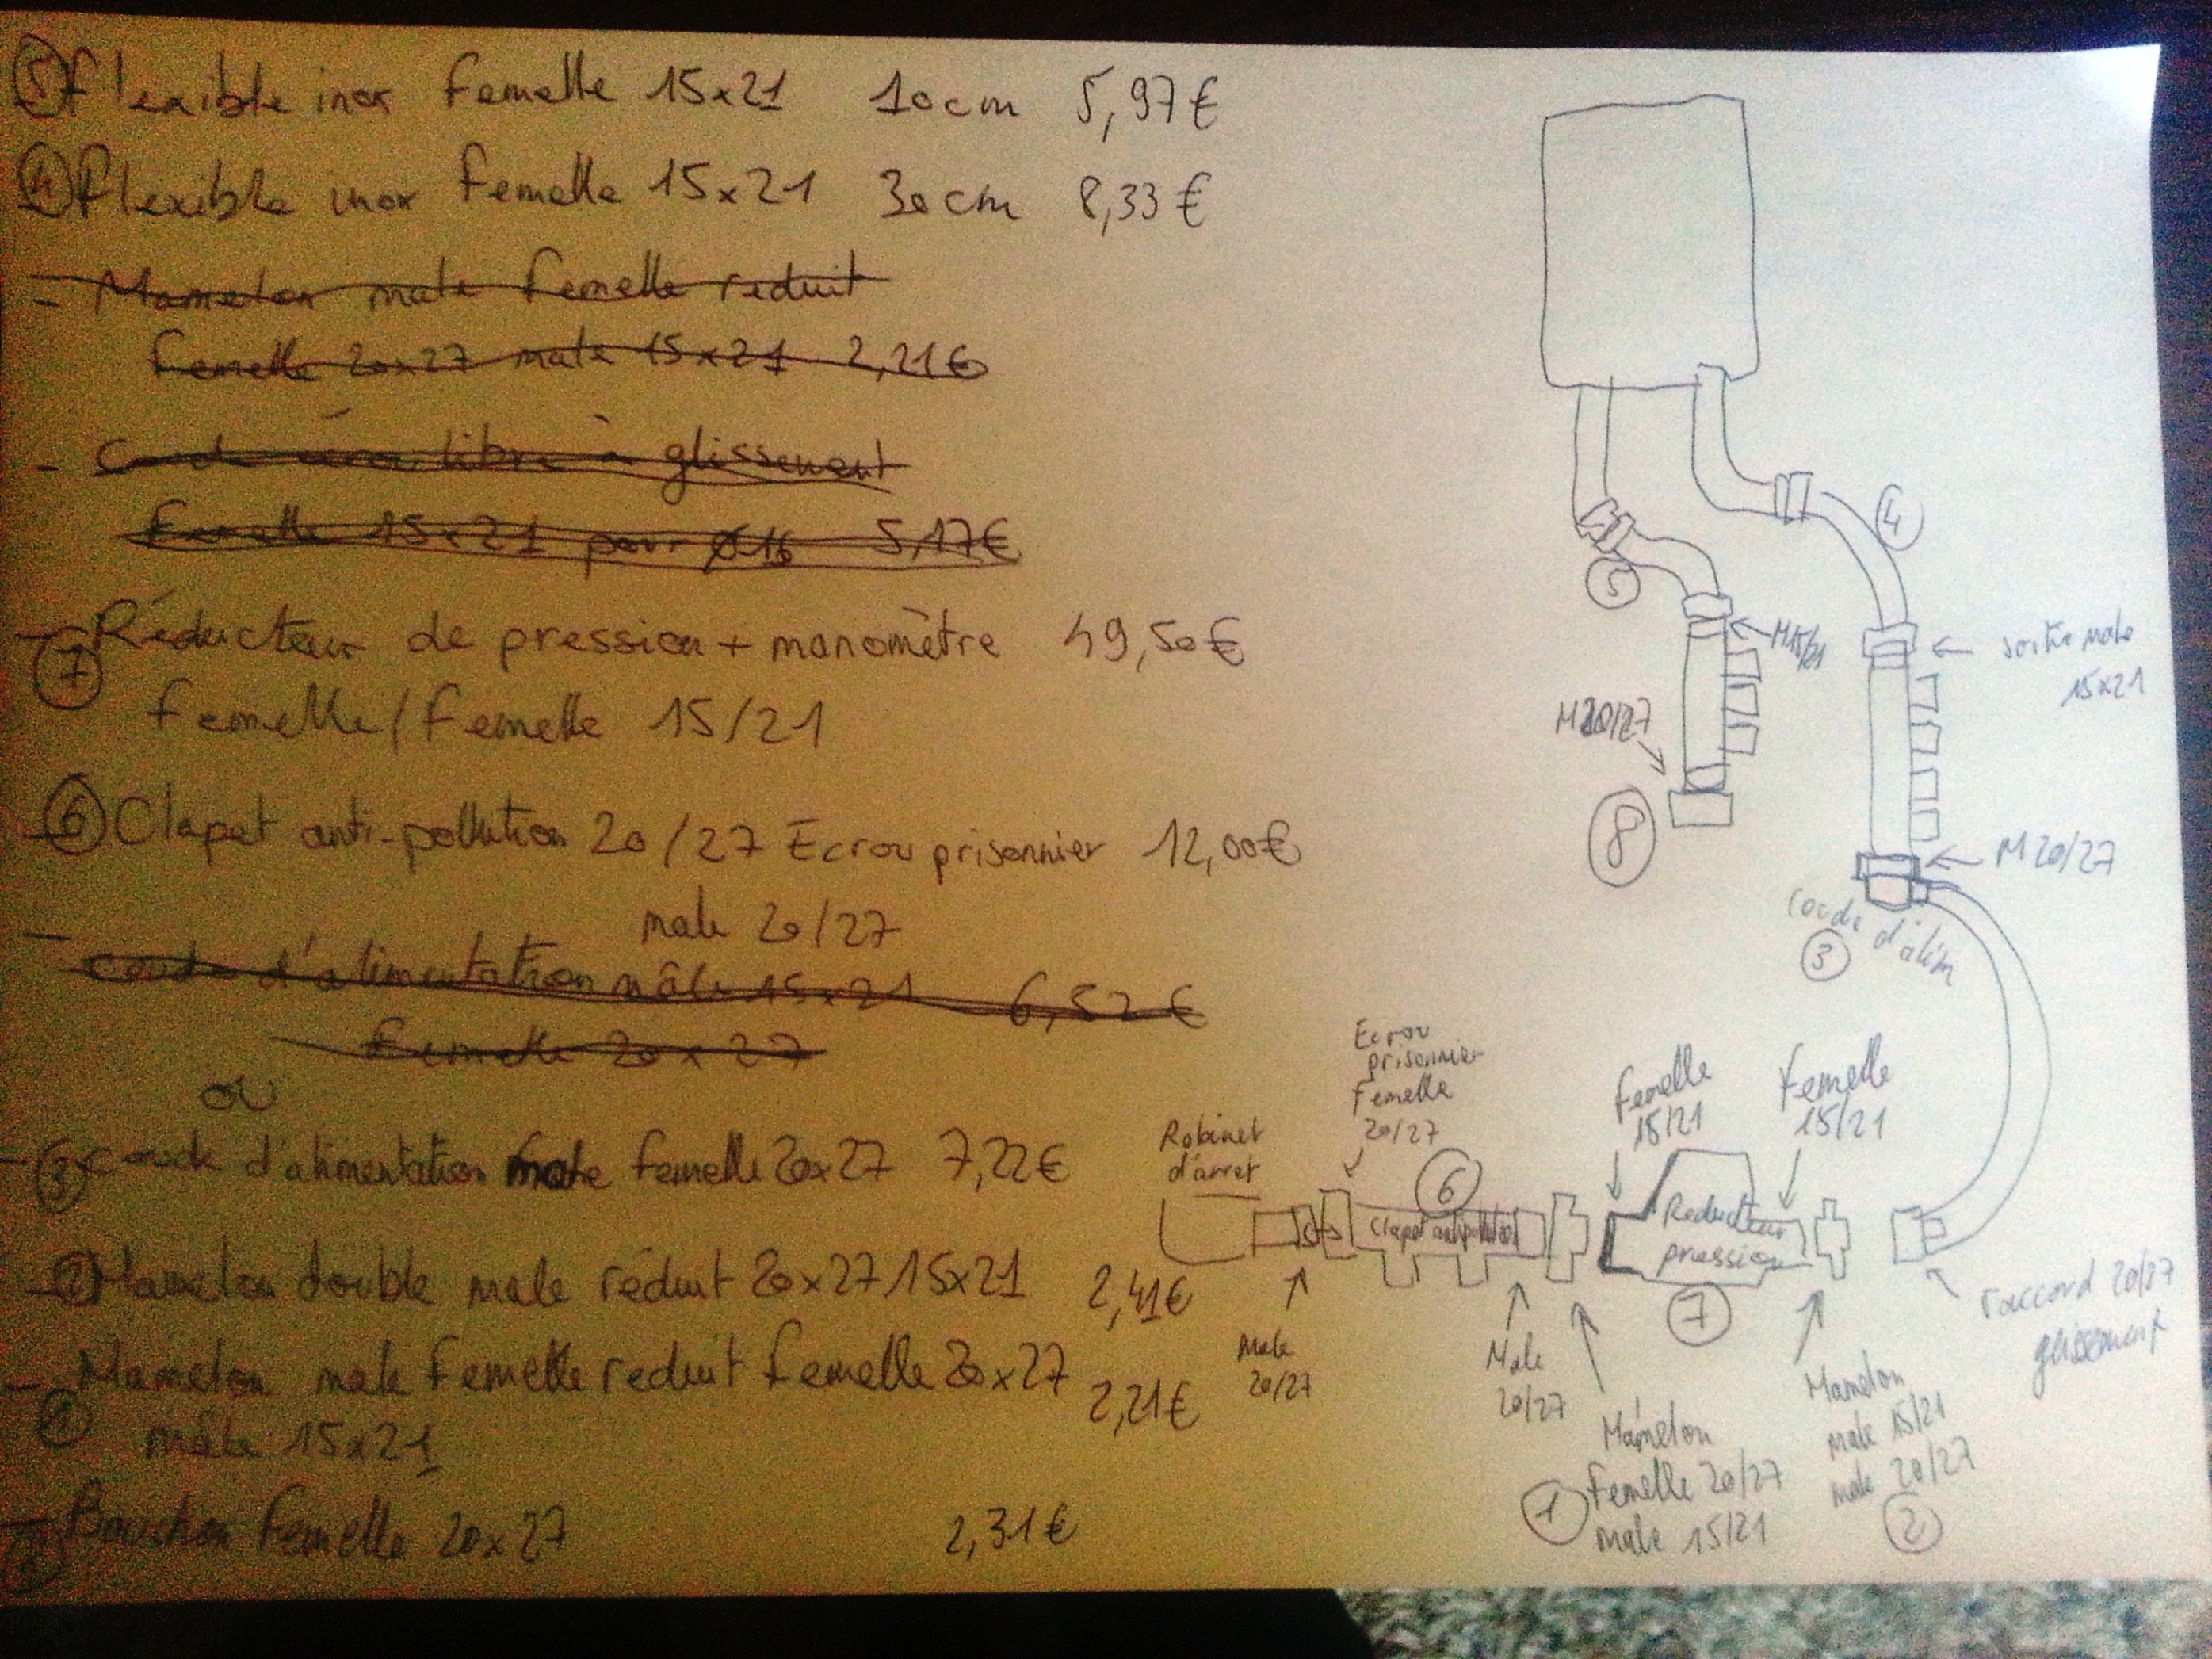 ⑤ flexible inox femelle 15x21 10cm 5,97€
④ flexible inox femelle 15x21 30cm 8,33€
- Mamelon male femelle reduit
femelle 20x27 male 15x21 2,21€
- libre à glissement
femelle 15x21 pour Ø16 5,17€
- Réducteur de pression + manomètre 49,50€
⑦
femelle/femelle 15/21
⑥ Clapet anti-pollution 20/27 Ecrou prisonnier 12,00€
male 20/27
- coude d'alimentation mâle 15x21 6,52€
femelle 20x27
ou
- ③ coude d'alimentation femelle 20x27 7,22€
- ② Mamelon double male réduit 20x27 15x21 2,41€
- Mamelon male femelle reduit femelle 20x27 2,21€
①
mâle 15x21
- Bouchon femelle 20x27 2,31€
⑧
④
⑤
M15/21
sortie male
15x21
M20/27
⑧
M20/27
coude d'alim
③
Ecrou
prisonnier
femelle
20/27
femelle
15/21
femelle
15/21
Robinet
d'arret
⑥
Clapet antipollution
Reducteur
pression
⑦
raccord 20/27
glissement
Male
20/27
Male
20/27
Mamelon
① femelle 20/27
male 15/21
Mamelon
male 15/21
male 20/27
②